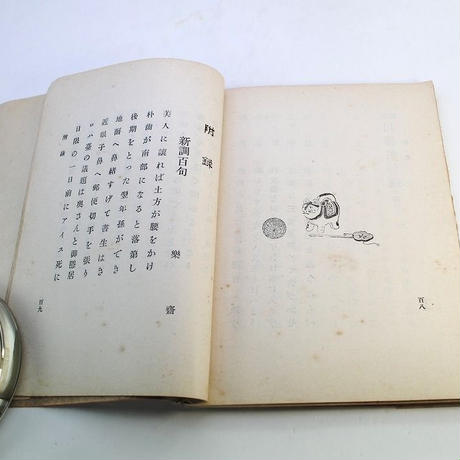 百八
附錄
新調百句
樂齋
美人に讓れば土方が腰をかけ
朴齒が南部になると落第し
後期をとった翌年孫ができ
地面へ鼻緖すげて書生はき
近眼子鼻へ郵便切手を張り
ロハ臺の議題は奥さんと御隱居
日限の一日前にアイス死に
附錄
百九